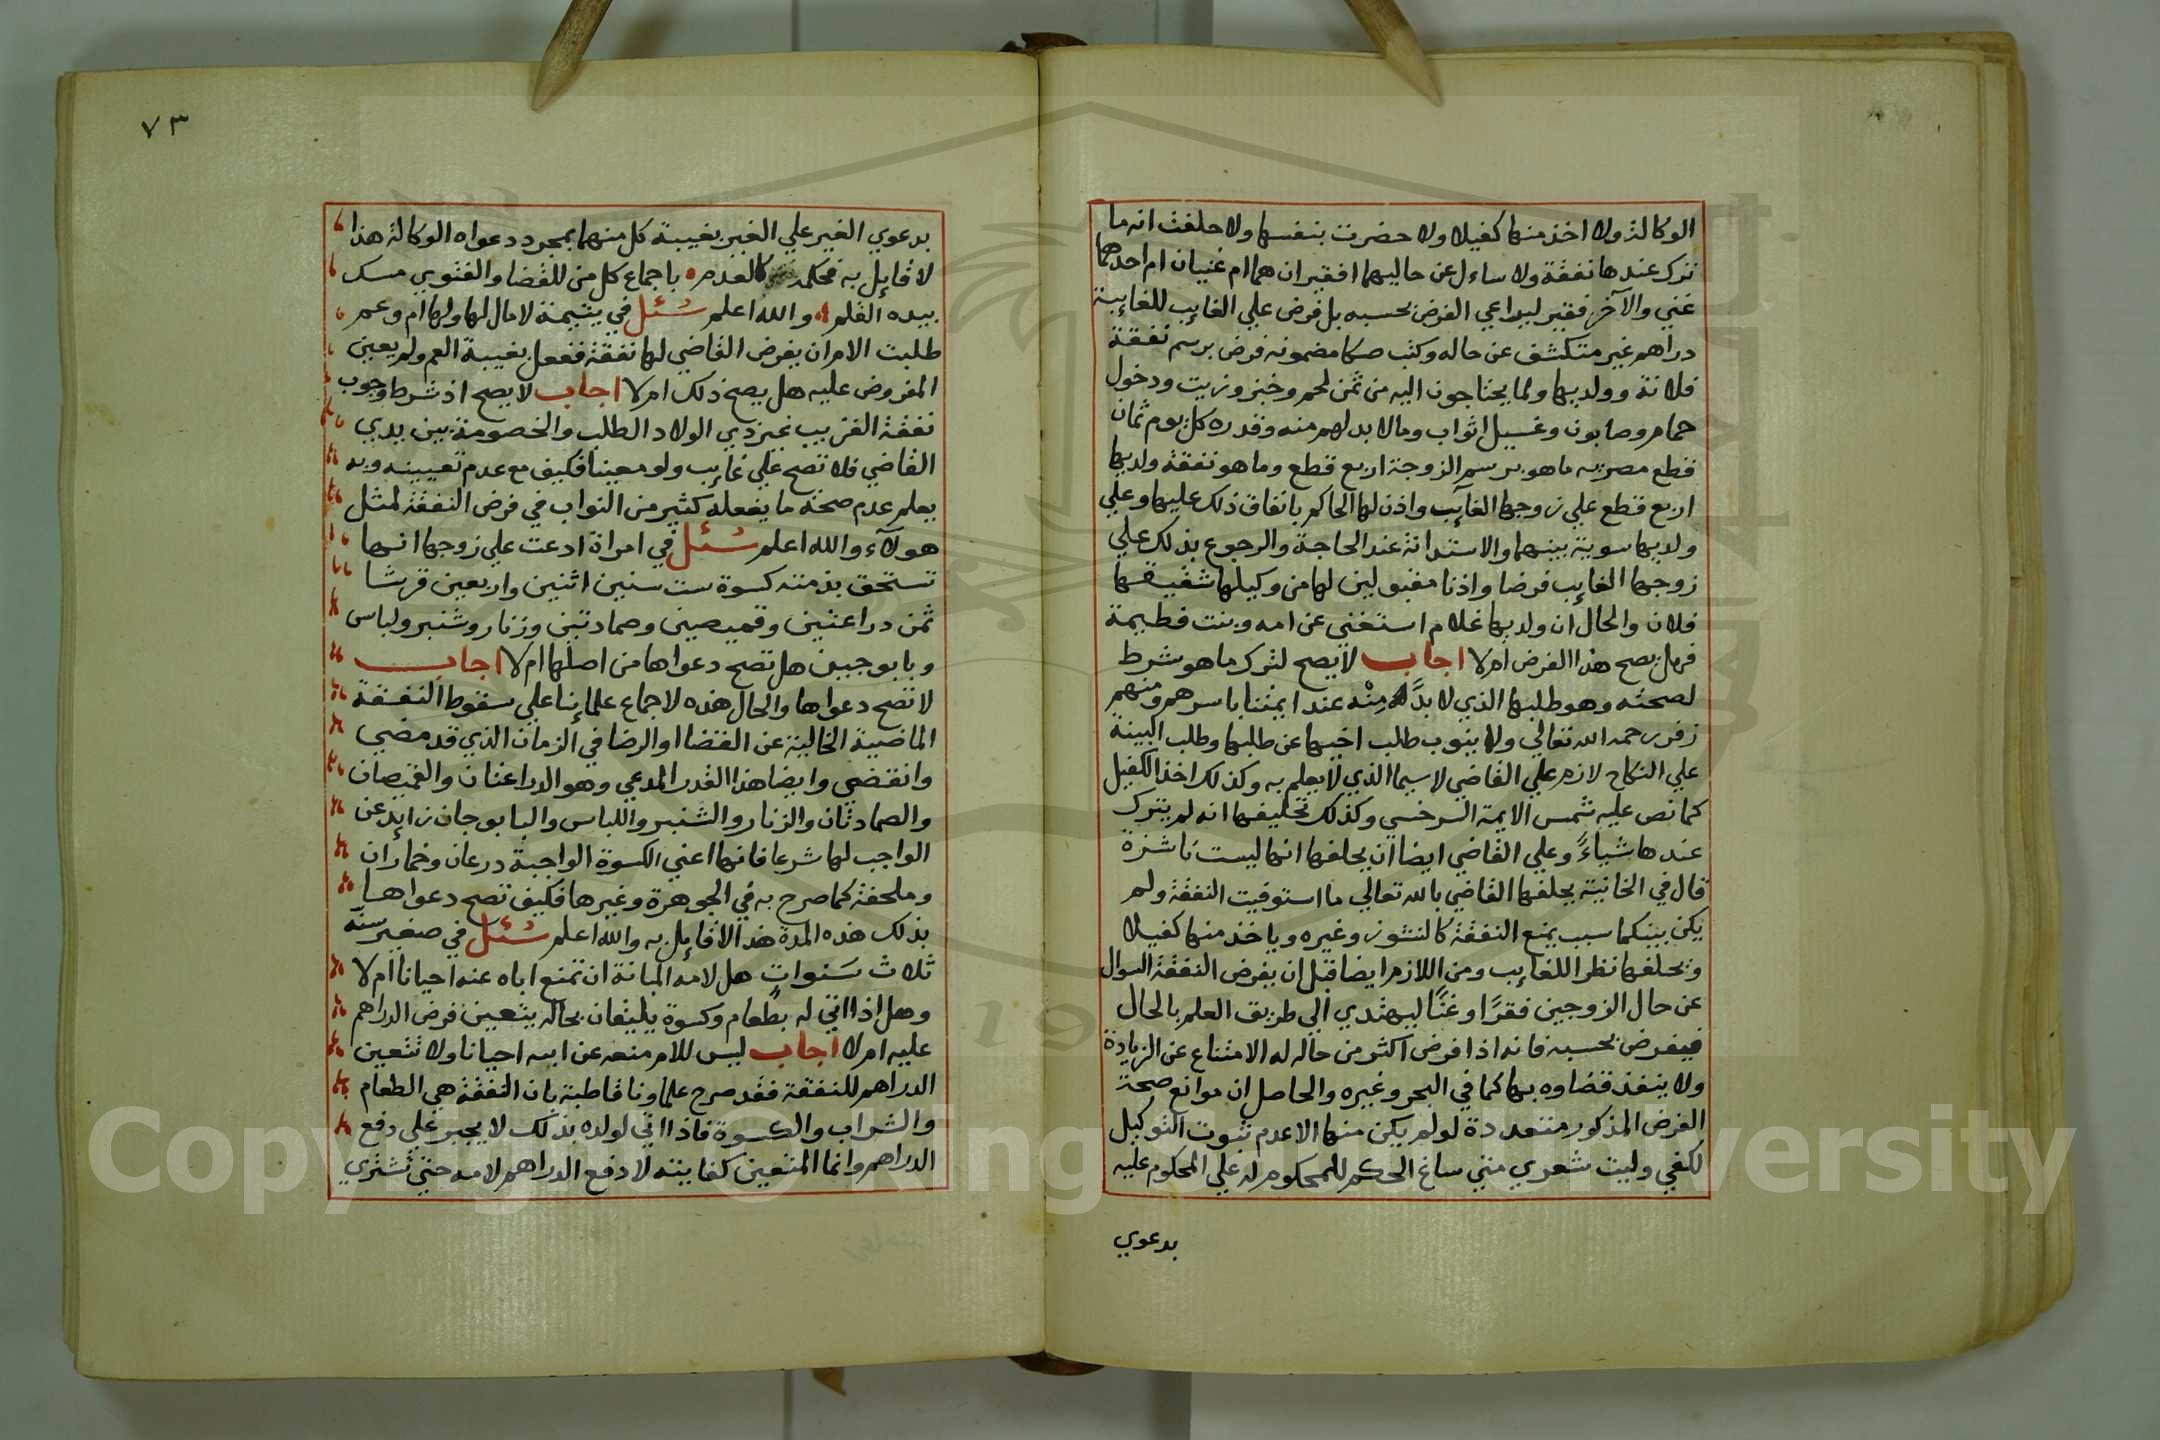 الوكالة ولا اخذ منها كفيلا ولا حضرت بنفسها ولا حلفت انه ما
ترك عندها نفقة ولا ساءل عن حاليهما افقيران هما ام غنيان ام احدهما
غني والآخر فقير ليراعي الفرض بحسبه بل فرض علي الغايب للغايبة
دراهم غير متكشف عن حاله وكتب صكا مضمونه فرض برسم نفقة
فلانة وولديها ولما يحتاجون اليه من ثمن لحم وخبز وزيت ودخول
حمام وصابون وغسيل اثواب ومالا بد لهم منه وقدره كل يوم ثمان
قطع مصريه ما هو برسم الزوجة اربع قطع وما هو نفقة ولديها
اربع قطع علي زوجها الغايب واذن لها الحاكم بانفاق ذلك عليها وعلي
ولديها سوية بينهما والاستدانة عند الحاجة والرجوع بذلك علي
زوجها الغايب فرضا واذنا مقبولين لها من وكيلها شقيقها
فلان والحال ان ولديها غلام استغني عن امه وبنت فطيمة
فهل يصح هذا الفرض ام لا اجاب لا يصح لترك ما هو شرط
لصحته وهو طلبها الذي لا بدَّ مِنْه عند ايمتنا باسرهم ومنهم
زفر رحمه الله تعالي ولا ينوب طلب اخيها عن طلبها وطلب البينة
علي النكاح لازم علي القاضي لاسيما الذي لا يعلم به وكذلك اخذ الكفيل
كما نص عليه شمس الايمة السرخسي وكذلك تحليفها انه لم يترك
عندها شياءً وعلي القاضي ايضا ان يحلفها انها ليست ناشزة
قال في الخانية يحلفها القاضي بالله تعالي ما استوفيت النفقة ولم
يكن بينكما سبب يمنع النفقة كالنشوز وغيره وياخذ منها كفيلا
ويحلفها نظرا للغايب ومن اللازم ايضا قبل ان يفرض النفقة السوال
عن حال الزوجين فقرًا وغنًا ليهتدي الي طريق العلم بالحال
فيفرض بحسبه فانه اذا فرض اكثر من حاله له الامتناع عن الزيادة
ولا ينفذ قضاوه بها كما في البحر وغيره والحاصل ان موانع صحة
الفرض المذكور متعددة لو لم يكن منها الا عدم ثبوت التوكيل
لكفي وليت شعري متي ساغ الحكم للمحكوم له علي المحكوم عليه
بدعوي
٧٣
بدعوي الغير علي الغير بغيبة كل منهما بمجرد دعواه الوكالة هذا
لا قايل به فحكمه كالعدم باجماع كل من للقضا والفتوي مسك
بيده القلم والله اعلم سُئل في يتيمة لا مال لها ولها ام وعم
طلبت الام ان يفرض القاضي لها نفقة ففعل بغيبة العم ولم يعين
المفروض عليه هل يصح ذلك ام لا اجاب لا يصح اذ شرط وجوب
نفقة القريب غير ذي الولاد الطلب والخصومة بين يدي
القاضي فلا تصح علي غايب ولو معينا فكيف مع عدم تعيينه وبه
يعلم عدم صحة ما يفعله كثير من النواب في فرض النفقة لمثل
هولآء والله اعلم سُئل في امراة ادعت علي زوجها انها
تستحق بذمته كسوة ست سنين اثنين واربعين قرشا
ثمن دراعتين وقميصين وصمادتين وزنار وشنبر ولباس
وبابوجين هل تصح دعواها من اصلها ام لا اجاب
لا تصح دعواها والحال هذه لاجماع علماينا علي سقوط النفقة
الماضية الخالية عن القضا او الرضا في الزمان الذي قد مضي
وانقضي وايضا هذا القدر المدعي وهو الدراعتان والقميصان
والصمادتان والزنار والشنبر واللباس والبابوجان زايد عن
الواجب لها شرعا فانها اعني الكسوة الواجبة درعان وخماران
وملحفة كما صرح به في الجوهرة وغيرها فكيف تصح دعواها
بذلك هذه المدة هذا لا قايل به والله اعلم سُئل في صغير سنه
ثلاث سَنوات هل لامه المبانة ان تمنع اباه عنه احيانا ام لا
وهل اذا اتي له بطعام وكسوة يليقان بحاله يتعين فرض الدراهم
عليه ام لا اجاب ليس للام منعه عن ابيه احيانا ولا تتعين
الدراهم للنفقة فقد صرح علماونا قاطبة بان النفقة هي الطعام
والشراب والكسوة فاذا اتي لولده بذلك لا يجبر علي دفع
الدراهم وانما المتعين كفايته لا دفع الدراهم لامه حتي تشتري
Copyright © King Saud University